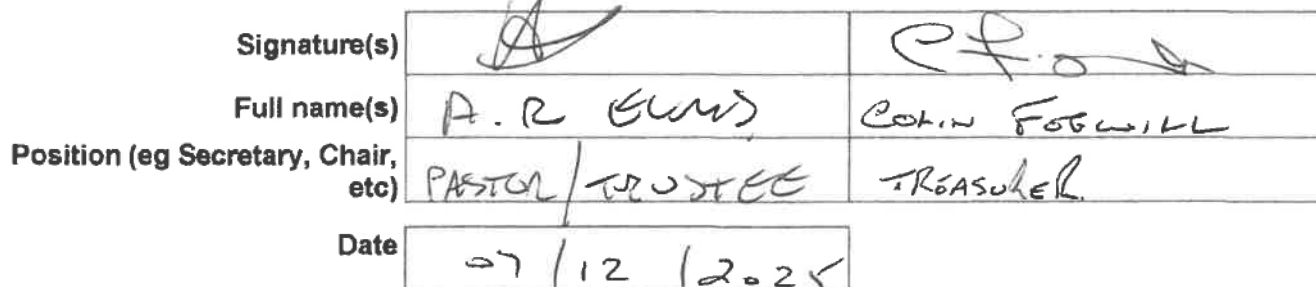 Signature(s)
Full name(s) A. R COLIN FOGWILL
Position (eg Secretary, Chair,
etc) PASTOR / TRUSTEE TREASURER
Date 07 / 12 / 2025